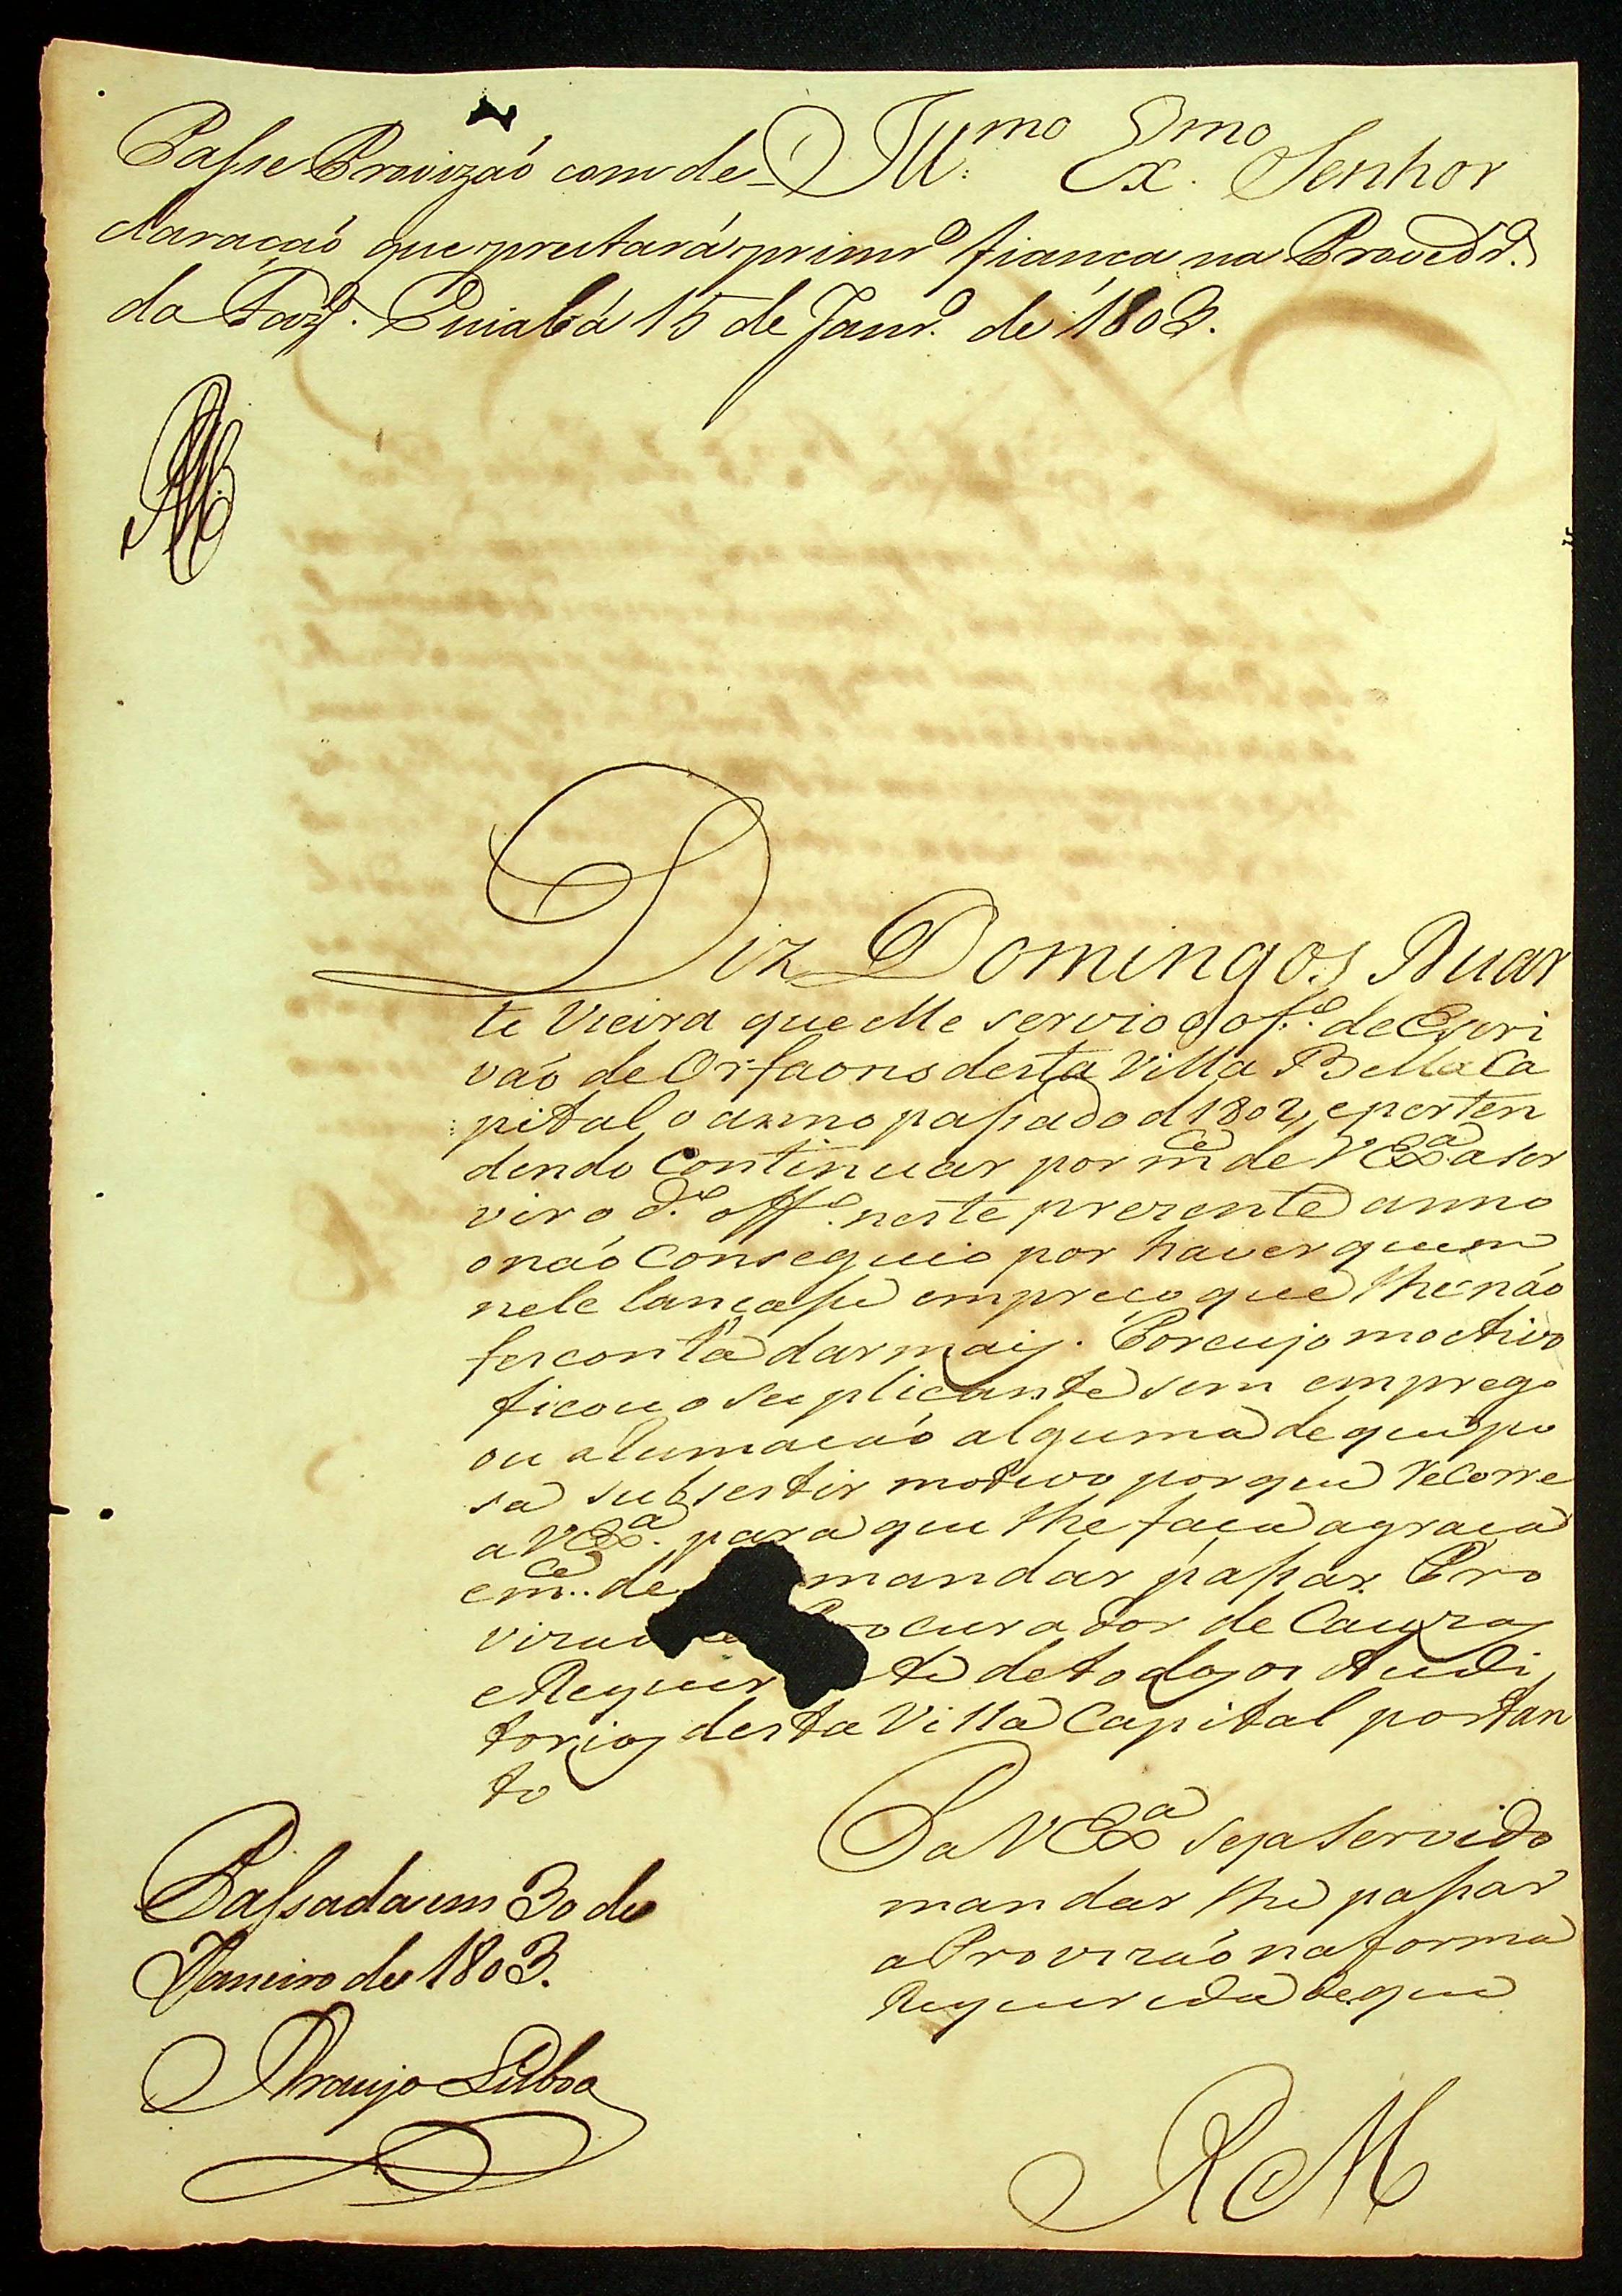 Ill.mo Ex.mo Senhor
Passe Provizaó com de-
claraçaó que prestará primr.o fiança na Provedr.a
da Fazd.a Cuiabá 15 de Janr.o de 1803.
Diz Domingos Duar
te Vieira que elle servio o of.o de Escri
vaó de Orfaons desta Villa Bella Ca
pital o anno passado d 1802, e perten
dendo continuar por m.ce de V Ex.a a ser
vir o d.o off.o neste prezente anno
o naó conseguio por haver quem
nele lançasse em preço que lhe náo
fes conta dar mais. Por cujo moctivo
ficou o suplicante sem emprego
ou arumacaó alguma de que po
sa subsestir motivo por que recorre
a V Ex.a para que lhe faça a graça
e m.ce de mandar passar Pro
vizaó de Procurador de Cauzas
e Requer te de todos os Audi
torios desta Villa Capital portan
to
Pa V Ex.a seja servido
mandar lhe passar
a Provizaó na forma
Requerida de que
R M
Passada em 30 de
Janeiro de 1803.
Araujo Lisboa